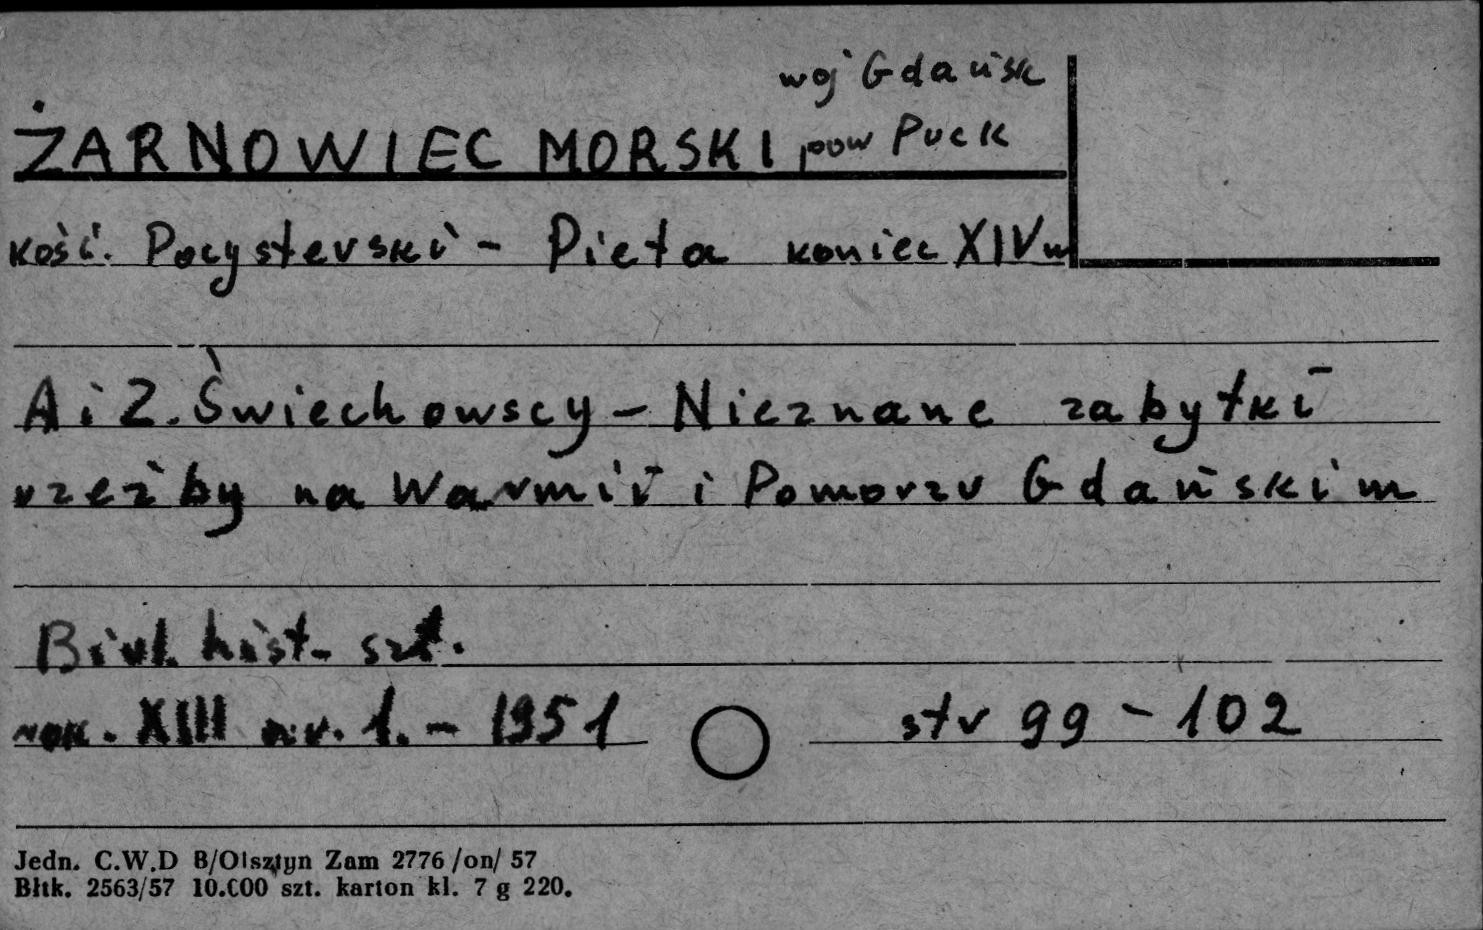 woj Gdańsk
ŻARNOWIEC MORSKI pow Puck
kość. Pocysterski - Pieta koniec XIV w
A i Z. Świechowscy - Nieznane zabytki
rzeźby na Warmii i Pomorzu Gdańskim
Biul. hist. szt.
rok. XIII nr. 1. - 1951 str 99 - 102
Jedn. C.W.D B/Olsztyn Zam 2776 /on/ 57
Błtk. 2563/57 10.000 szt. karton kl. 7 g 220.